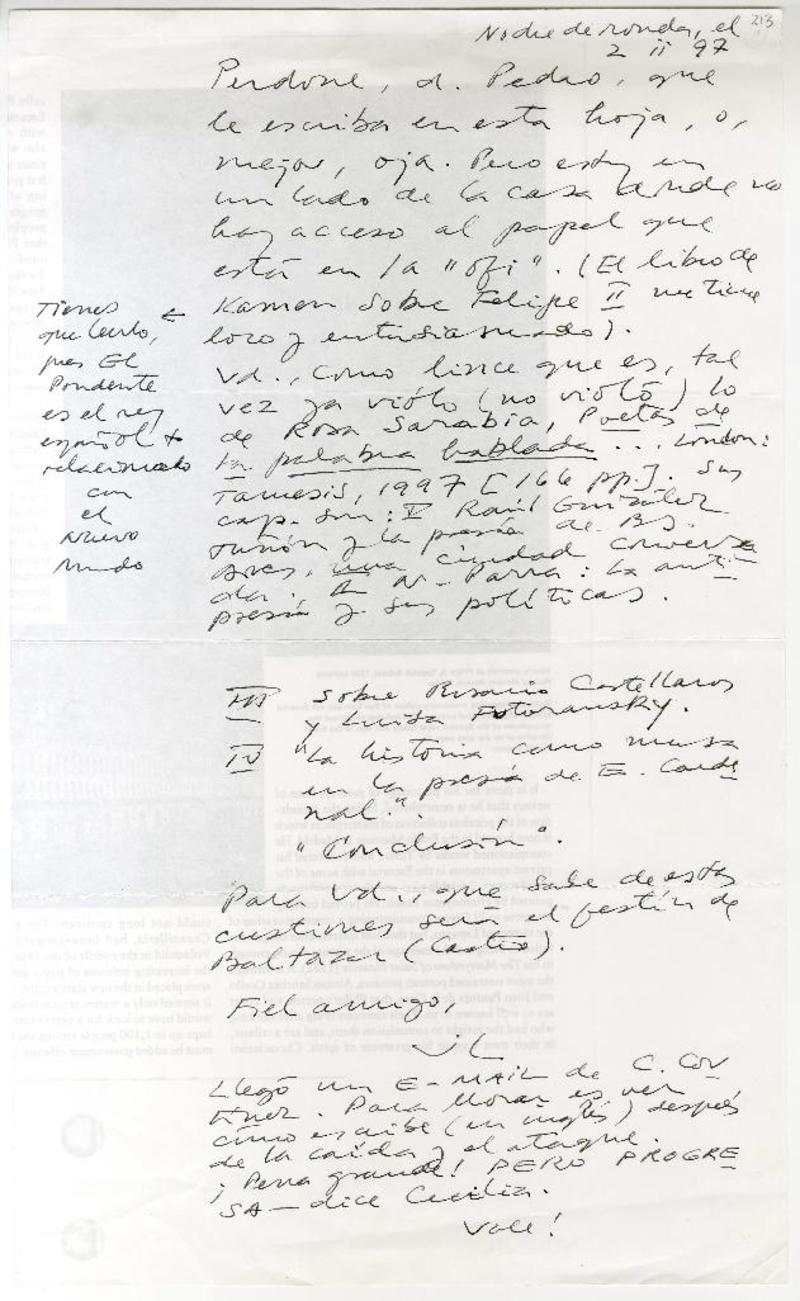 213
Noche de ronda, el
2 ii 97
Perdone, d. Pedro, que
le escriba en esta hoja, o,
mejor, oja. Pero estoy en
un lado de la casa donde no
hay acceso al papel que
está en la "ofi". (El libro de
Kamen sobre Felipe II me tiene
loco y entusiasmado).
Tienes ←
que leerlo,
pues El
Prudente
es el rey
español +
relacionado
con
el
Nuevo
Mundo
Vd., como lince que es, tal
vez ya viólo (no violó) lo
de Rosa Sarabia, Poetas de
la palabra hablada ... London:
Tamesis, 1997 [166 pp.]. Sus
cap. son: I Raúl González
Tuñón y la poesía de Bs.
Aires, una ciudad conversa
da; II N. Parra: la anti
poesía y sus políticas.
III Sobre Rosario Castellanos
y Luisa Futoransky.
IV "La historia como musa
en la poesía de E. Carde
nal."
"Conclusión".
Para Vd., que sabe de estas
cuestiones será el festín de
Baltazar (Castro).
Fiel amigo,
Llegó un E-MAIL de C.
Para llorar es ver
cómo escribe (en inglés) después
de la caída y el ataque.
¡Pena grande! PERO PROGRE
SA — dice Cecilia.
Vale!